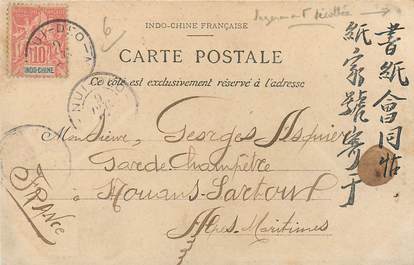 INDO-CHINE FRANÇAISE
CARTE POSTALE
Ce côté est exclusivement réservé à l'adresse
10
INDO-CHINE
6
Monsieur Georges
Garde-Champêtre
à Mouans-Sartoux
Alpes-Maritimes
FRANCE
書紙會同
紙家號寄于